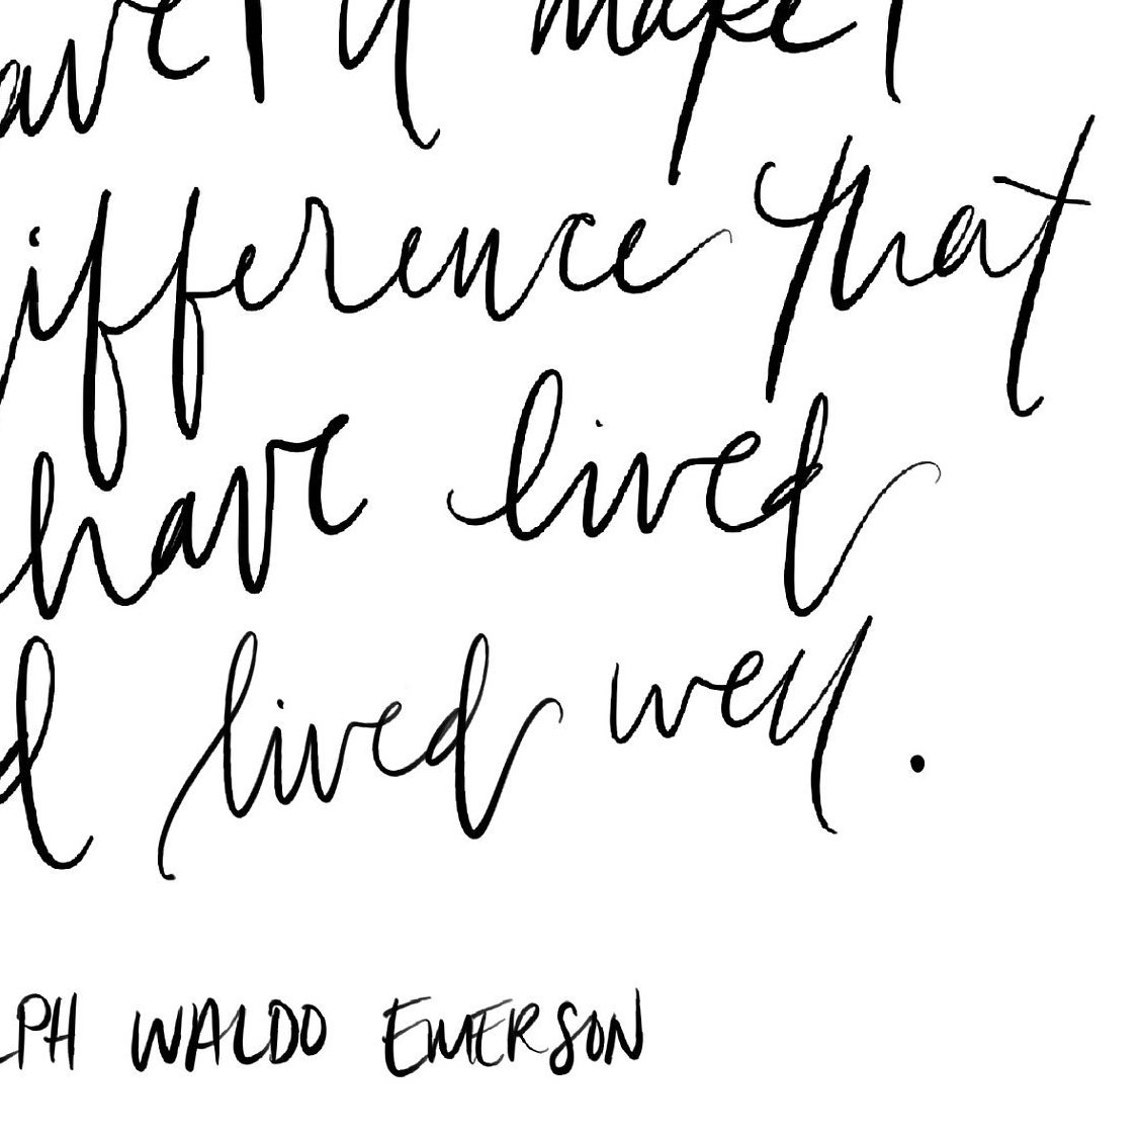 have it make
ifference that
have lived
d lived well.
LPH WALDO EMERSON